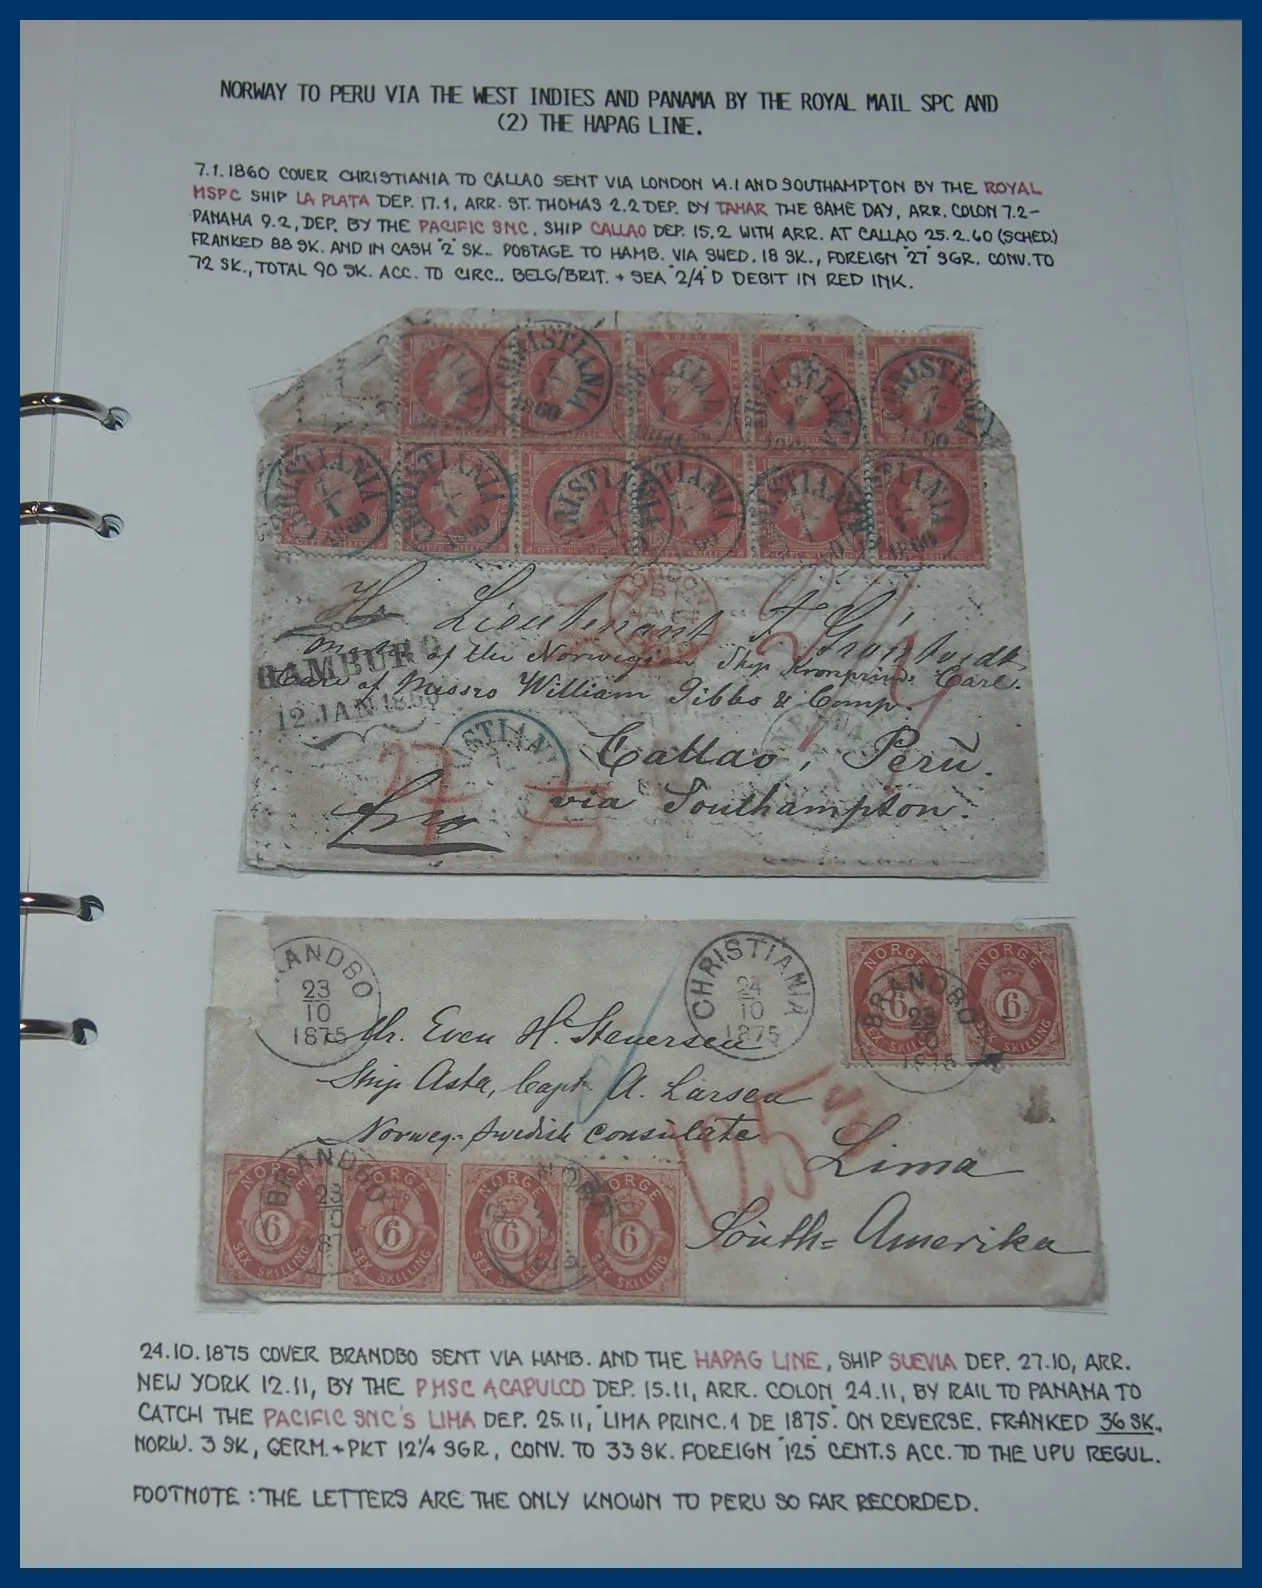 NORWAY TO PERU VIA THE WEST INDIES AND PANAMA BY THE ROYAL MAIL SPC AND
(2) THE HAPAG LINE.
7.1.1860 COVER CHRISTIANIA TO CALLAO SENT VIA LONDON 14.1 AND SOUTHAMPTON BY THE ROYAL
MSPC SHIP LA PLATA DEP. 17.1, ARR. ST. THOMAS 2.2 DEP. BY TAMAR THE SAME DAY, ARR. COLON 7.2-
PANAMA 9.2, DEP. BY THE PACIFIC SNC. SHIP CALLAO DEP. 15.2 WITH ARR. AT CALLAO 25.2.60 (SCHED.)
FRANKED 88 SK. AND IN CASH "2" SK.. POSTAGE TO HAMB. VIA SWED. 18 SK., FOREIGN "27" SGR. CONV. TO
72 SK., TOTAL 90 SK. ACC. TO CIRC.. BELG/BRIT. + SEA "2/4" D DEBIT IN RED INK.
CHRISTIANIA
7
1
1860
CHRISTIANIA
1860
CHRISTIANIA
1860
LONDON
Hr. Lieutenant
of the Norwegian Ship Kronprinds Carl.
Care of Messrs William Gibbs & Comp.
HAMBURG
12 JAN 1860
Callao, Perŭ.
27
via Southampton.
BRANDBO
23
10
1875
CHRISTIANIA
24
10
1875
NORGE
6
SEX SKILLING
NORGE
6
SEX SKILLING
BRANDBO
23
1875
Mr. Even H. Stenersen
Ship Asta, Capt. A. Larsen
Norweg.- Swedish Consulate
125
Lima
South= Amerika
NORGE
6
SEX SKILLING
NORGE
6
SEX SKILLING
NORGE
6
SEX SKILLING
NORGE
6
SEX SKILLING
BRANDBO
23
24.10.1875 COVER BRANDBO SENT VIA HAMB. AND THE HAPAG LINE, SHIP SUEVIA DEP. 27.10, ARR.
NEW YORK 12.11, BY THE PMSC ACAPULCO DEP. 15.11, ARR. COLON 24.11, BY RAIL TO PANAMA TO
CATCH THE PACIFIC SNC'S LIMA DEP. 25.11, "LIMA PRINC. 1 DE 1875". ON REVERSE. FRANKED 36 SK.,
NORW. 3 SK., GERM. + PKT 12¼ SGR, CONV. TO 33 SK. FOREIGN "125" CENT.S ACC. TO THE UPU REGUL.
FOOTNOTE : THE LETTERS ARE THE ONLY KNOWN TO PERU SO FAR RECORDED.